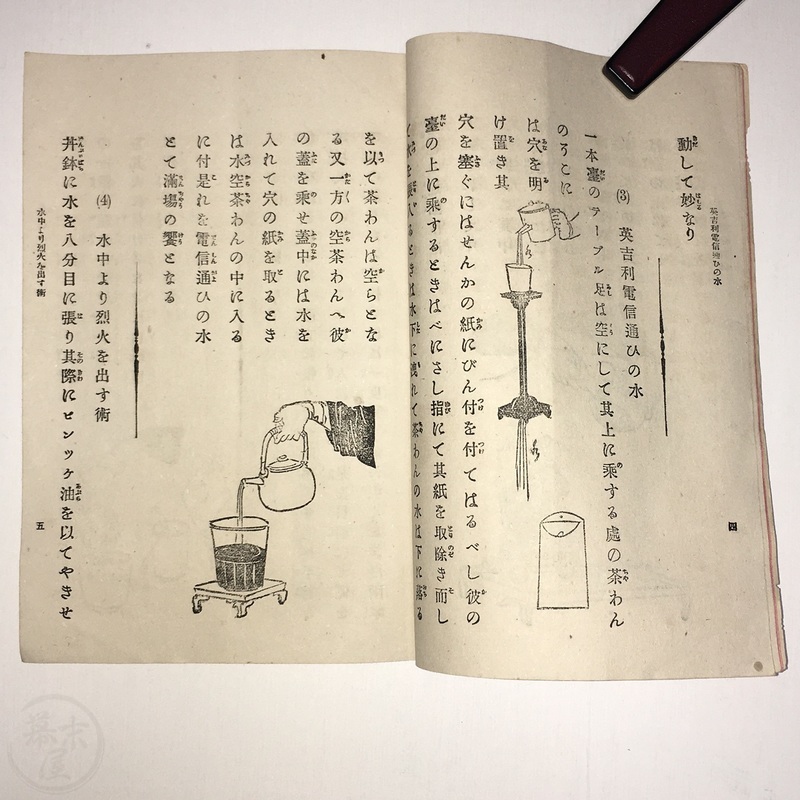 英吉利電信通ひの水
四
動して妙なり
(3) 英吉利電信通ひの水
一本臺のテーブル足は空にして其上に乘する處の茶わん
のうこに
は穴を明
け置き其
穴を塞ぐにはせんかの紙にびん付を付てはるべし彼の
臺の上に乘するときはべにさし指にて其紙を取除き而し
水を入るときは水下に洩れて茶わんの水は下に落る
を以て茶わんは空らとな
る又一方の空茶わんへ彼
の蓋を乘せ蓋中には水を
入れて穴の紙を取るとき
は水空茶わんの中に入る
に付是れを電信通ひの水
とて滿場の饗となる
(4) 水中より烈火を出す術
丼鉢に水を八分目に張り其際にビンツケ油を以てやきせ
水中より烈火を出す術
五
幕末屋